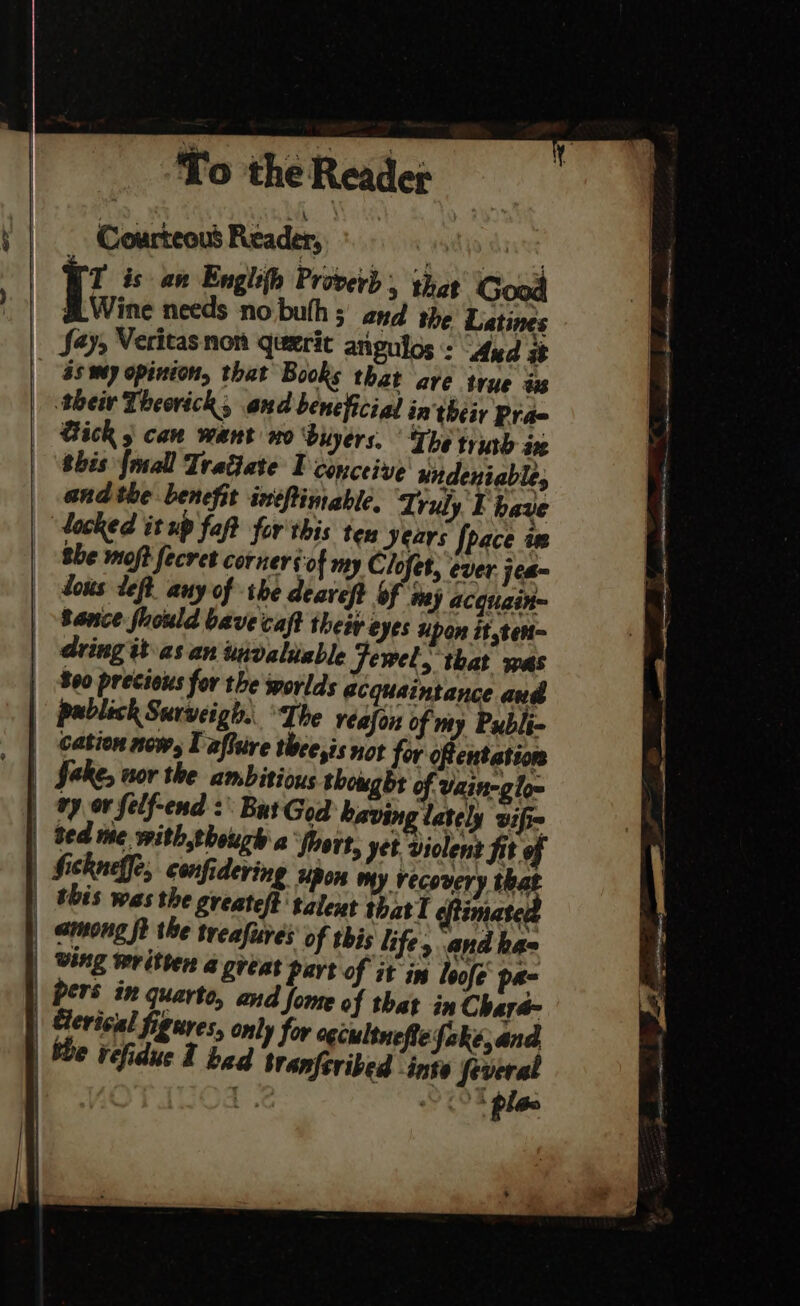 To the Reader
Courteous Reader,
IT is an Engliſh Proverb, that Good
Wine needs no buſh; and the Latines
ſay, Veritas non quærit angulos: And it
is my opinion, that Books that are true in
their Theorick, and beneficial in their Pra-
ctick, can want no buyers. The truth in
this ſmall Tractate I conceive undeniable,
and the benefit ineſtimable. Truly I have
locked it up faſt for this ten years ſpace in
the moſt ſecret corners of my Cloſet, ever jea-
lous leſt any of the deareſt of my acquain-
tance ſhould have caſt their eyes upon it, ten-
dring it as an unvaluable Jewel, that was
too precious for the worlds acquaintance and
publick Surveigh. The reaſon of my Publi-
cation now, I aſſure thee, is not for oſtentation
ſake, nor the ambitious thought of vain-glo-
ry or ſelf-end: But God having lately viſi-
ted me with, though a ſhort, yet violent fit of
ſickneſſe, conſidering upon my recovery that
this was the greateſt talent that I eſtimated
amongſt the treaſures of this life, and ha-
ving written a great part of it in looſe pa-
pers in quarto, and ſome of that in Chara-
cterical figures, only for occultneſſe ſake, and
the reſidue I had tranſcribed into ſeveral
pla-